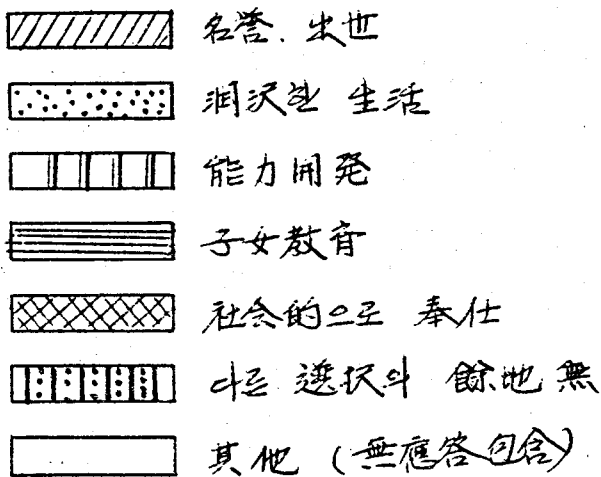 名誉. 出世
润沢한 生活
能力開発
子女教育
社会的으로 奉仕
다른 選択의 餘地 無
其他 (無應答包含)